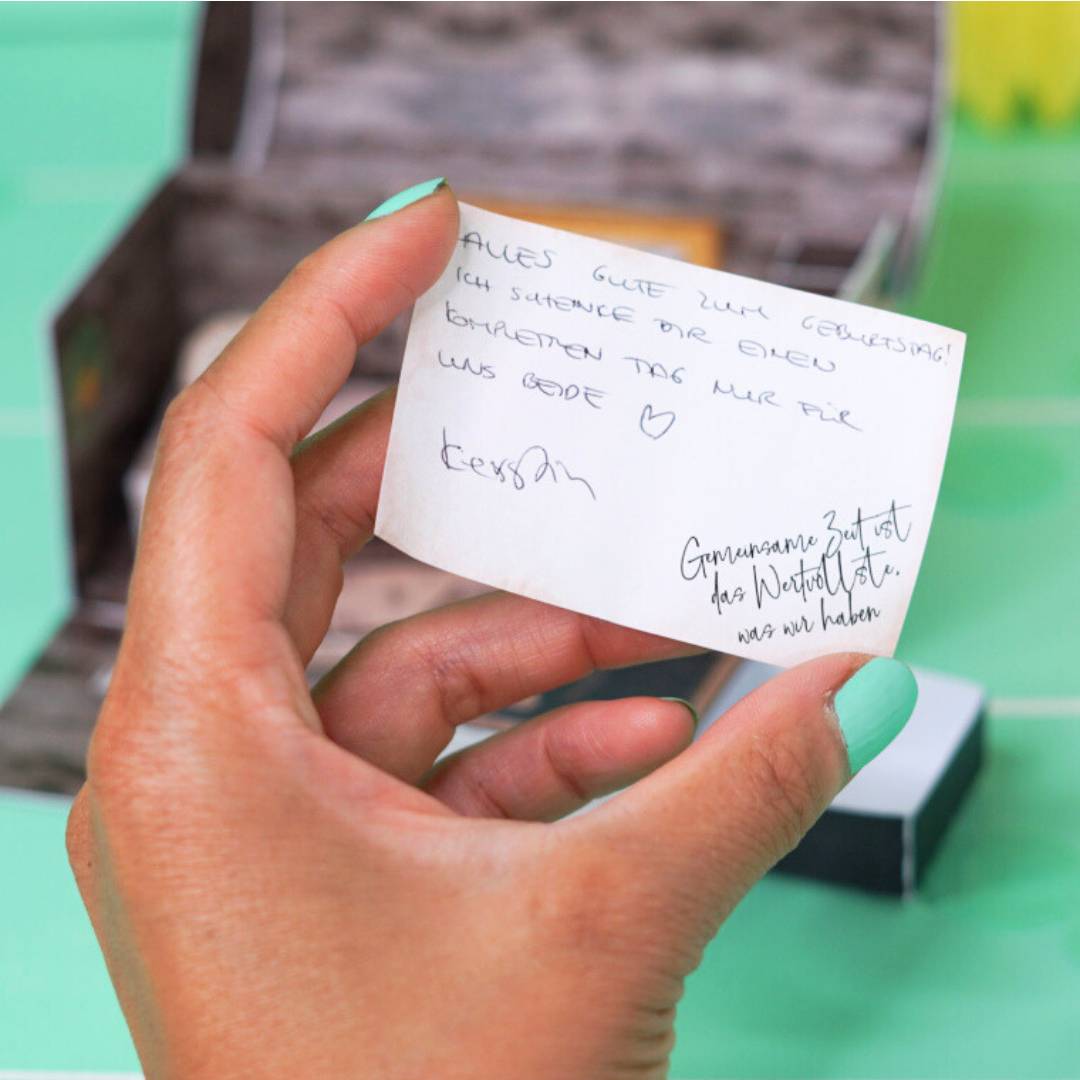 ALLES GUTE ZUM GEBURTSTAG!
ICH SCHENKE DIR EINEN
KOMPLETTEN TAG NUR FÜR
UNS BEIDE ♡
Kerstin
Gemeinsame Zeit ist
das Wertvollste,
was wir haben